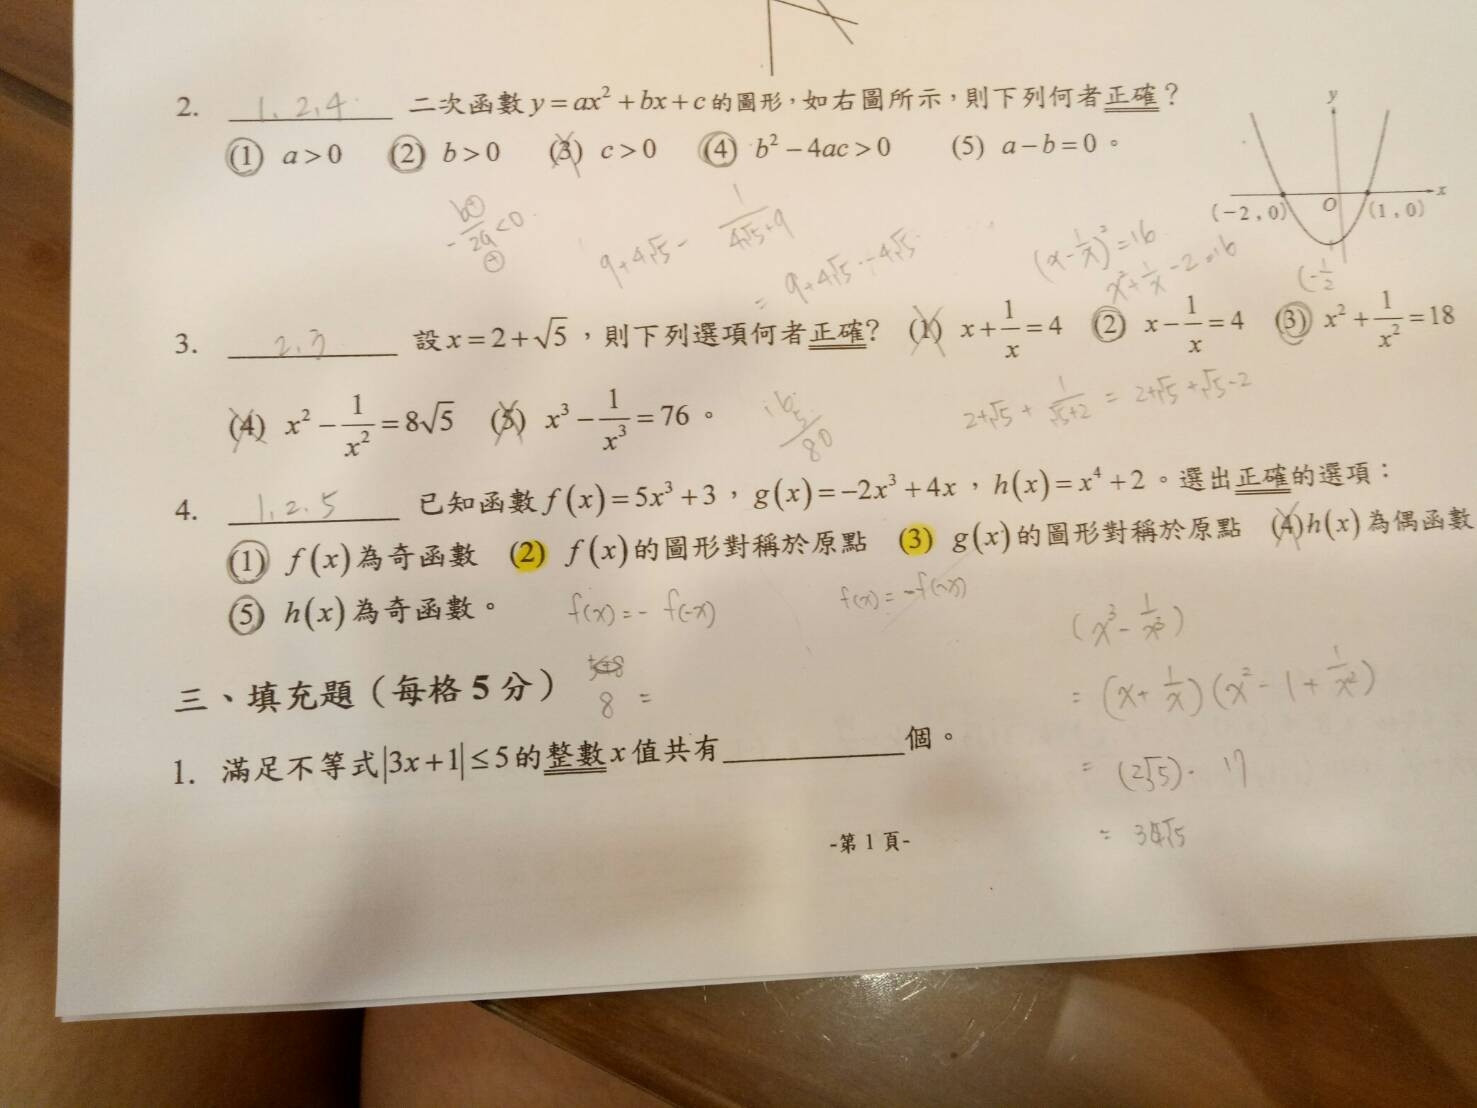 2. 1, 2, 4 二次函數 y = ax² + bx + c 的圖形，如右圖所示，則下列何者正確？
(1) a > 0 (2) b > 0 (3) c > 0 (4) b² − 4ac > 0 (5) a − b = 0 。
y
x
O
(−2 , 0)
(1 , 0)
(-1/2
-b/2a < 0
9+4√5 - 1/(4√5+9)
= 9+4√5
(x - 1/x)² = 16
3. 2, 3 設 x = 2 + √5 ，則下列選項何者正確? (1) x + 1/x = 4 (2) x − 1/x = 4 (3) x² + 1/x² = 18
(4) x² − 1/x² = 8√5 (5) x³ − 1/x³ = 76 。
2+√5 + 1/(√5+2) = 2+√5 + √5-2
80
4. 1, 2, 5 已知函數 f(x) = 5x³ + 3 ， g(x) = −2x³ + 4x ， h(x) = x⁴ + 2 。選出正確的選項：
(1) f(x) 為奇函數 (2) f(x) 的圖形對稱於原點 (3) g(x) 的圖形對稱於原點 (4) h(x) 為偶函數
(5) h(x) 為奇函數。
f(x) = - f(-x)
f(x) = -f(-x)
8 =
(x³ - 1/x³)
= (x + 1/x)(x² - 1 + 1/x²)
= (2√5) · 17
= 34√5
三、填充題（每格 5 分）
1. 滿足不等式 |3x + 1| ≤ 5 的整數 x 值共有__________個。
-第 1 頁-